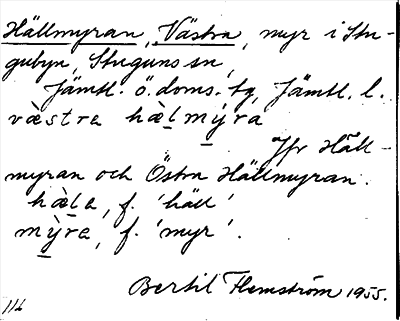 Hällmyran, Västra, myr i Stu-
gubyn, Stuguns sn,
Jämtl. ö. doms. tg, Jämtl. l.
vàstra hàl̲ m̲ýra
Jfr Häll-
myran och Östra Hällmyran.
hàl̲a, f. 'häll'
m̲ỳra, f. 'myr'.
Bertil Flemström 1955.